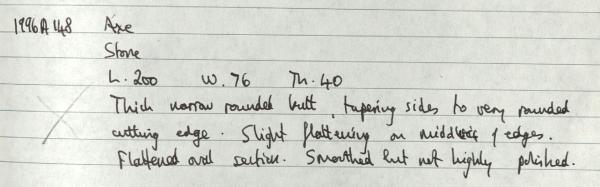 1996A148 Axe
Stone
L. 200 W. 76 Th. 40
Thick narrow rounded butt, tapering sides to very rounded
cutting edge. Slight flattening on middle of edges.
Flattened oval section. Smoothed but not highly polished.